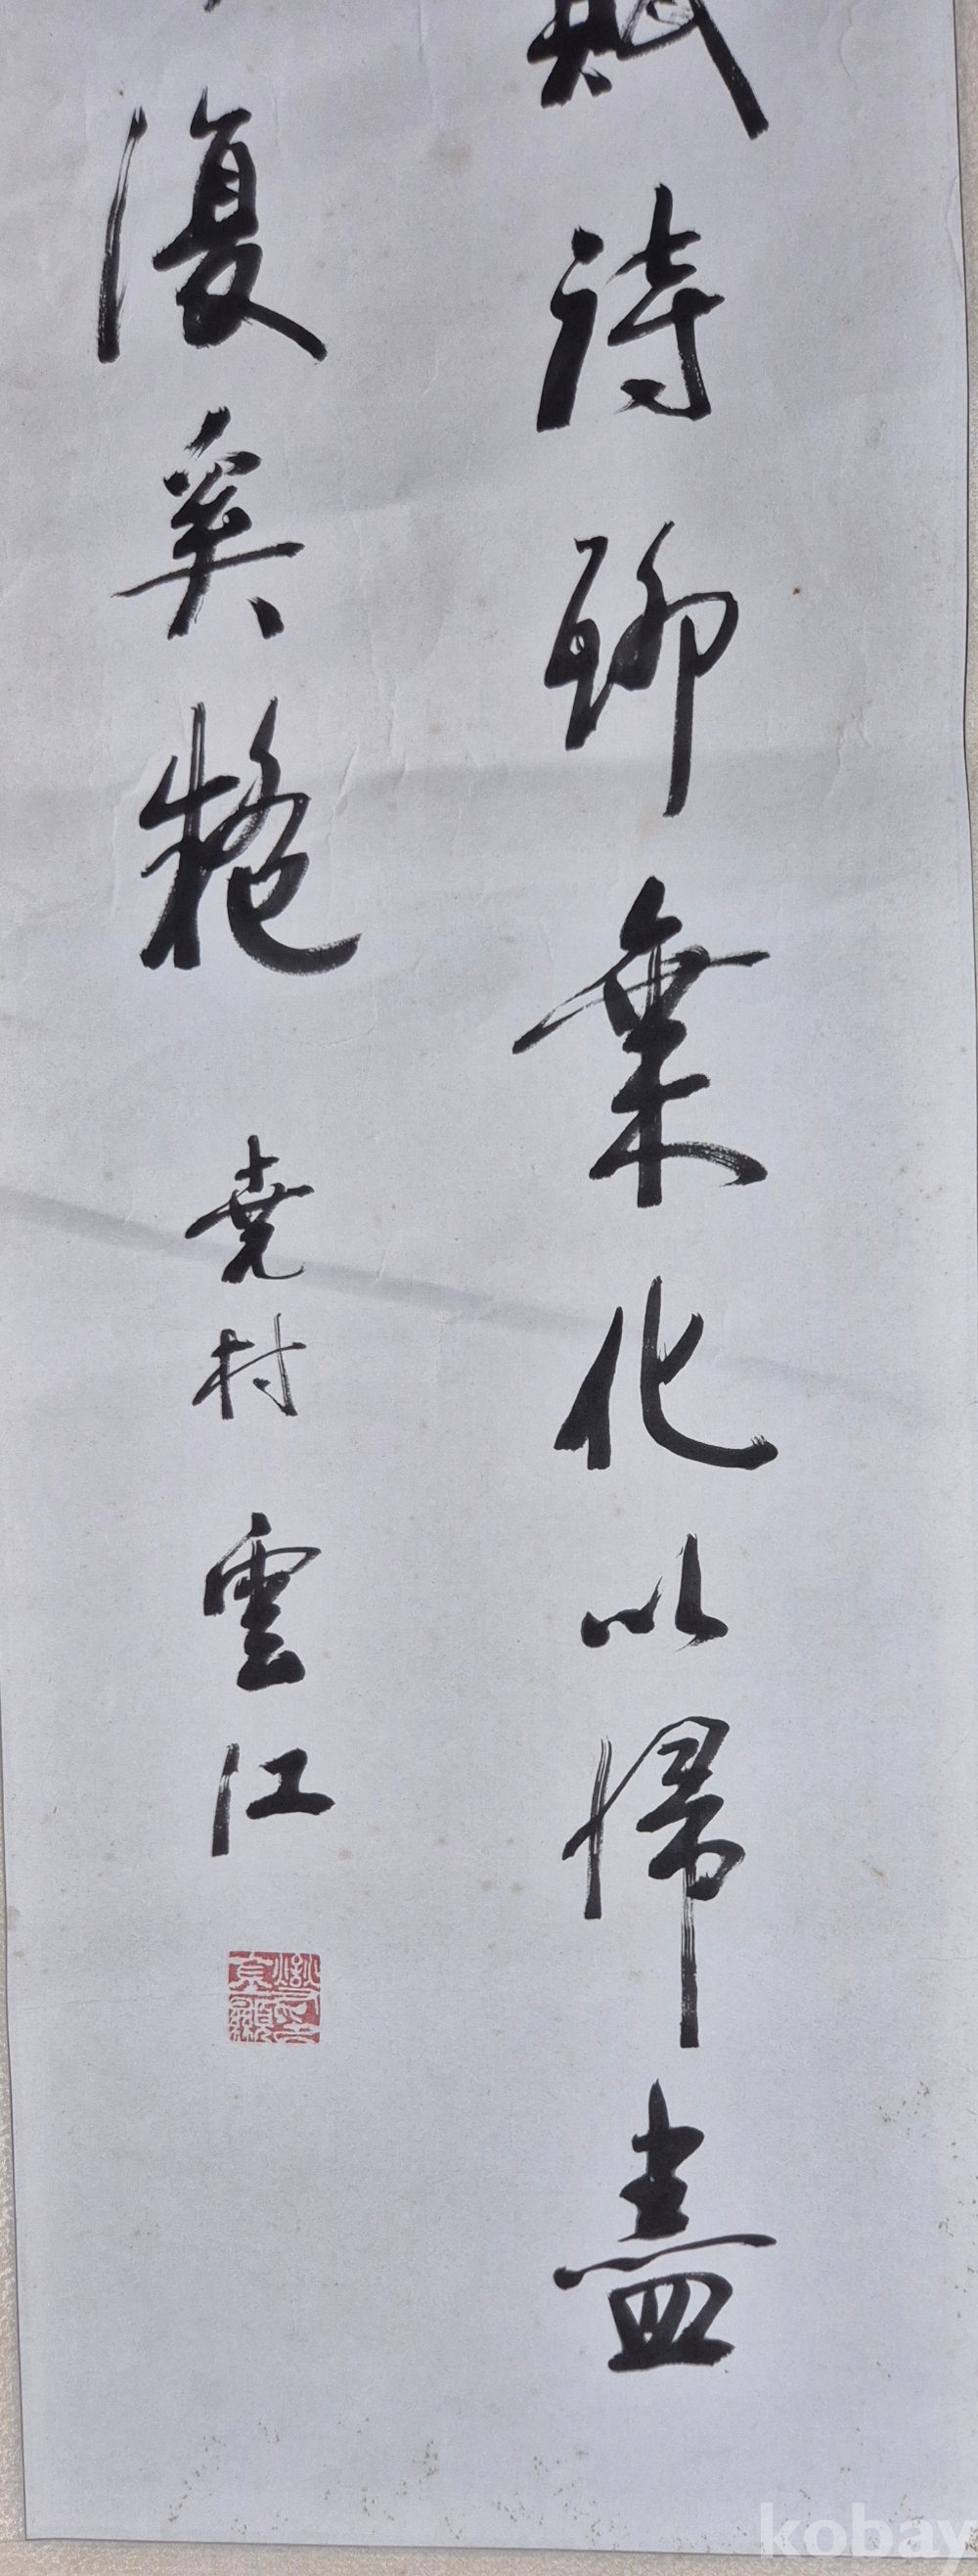 賦詩聊乘化以歸盡
復奚疑 堯村 雲江
kobay